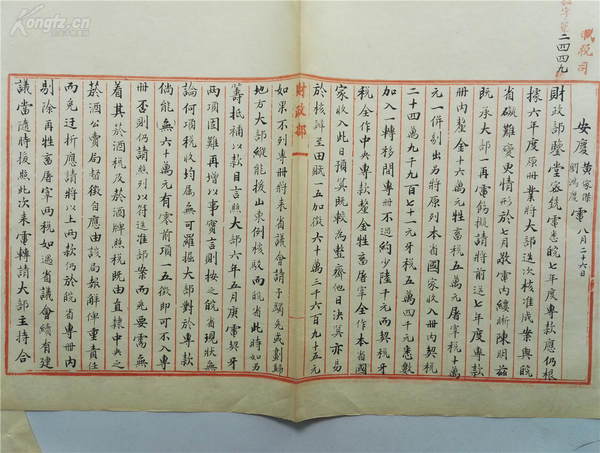 Kongfz.com
賦稅司
二四四九
安慶 黃家傑 劉鴻慶 電 八月二十六日
財政部鑒堂密銑電悉皖七年度專款應仍根
據六年度原冊業將大部迭次核准成案與皖
省礙難變更情形於七月敬電內縷晰陳明茲
既承大部一再電飭擬請將前送七年度專款
冊內釐金十六萬元牲畜稅五萬元屠宰稅十萬
元一併剔出另將原列本省國家收入冊內契稅
二十四萬九千九百七十一元牙稅五萬四千元悉數
加入一轉移間專冊不過約少陸千元而契牙
稅全作中央專款釐金牲畜屠宰全作本省國
家收入此日預算既較為整齊他日決算亦易
於核辦至田賦一五加徵六十萬三千六百九十五元
財政部
如果不列專冊將來省議會請予蠲免或劃歸
地方大部縱能援山東例核駁而皖省此時如另
籌抵補以款目言照大部六年五月庚電契牙
兩項固難再增以事實言則按之皖省現狀無
論何項稅收均屬無可羅掘大部對於專款
倘能無六十萬元有零前項一五徵即可不入專
冊否則仍請照列以符送准部案而免要需無
着其菸酒稅及菸酒牌照稅既由直隸中央之
菸酒公賣局督徵自應由該局報解俾重責任
而免迂折應請將以上兩款仍於皖省專冊內
剔除再牲畜屠宰兩稅如過省議會續有建
議當隨時援照此次來電轉請大部主持合